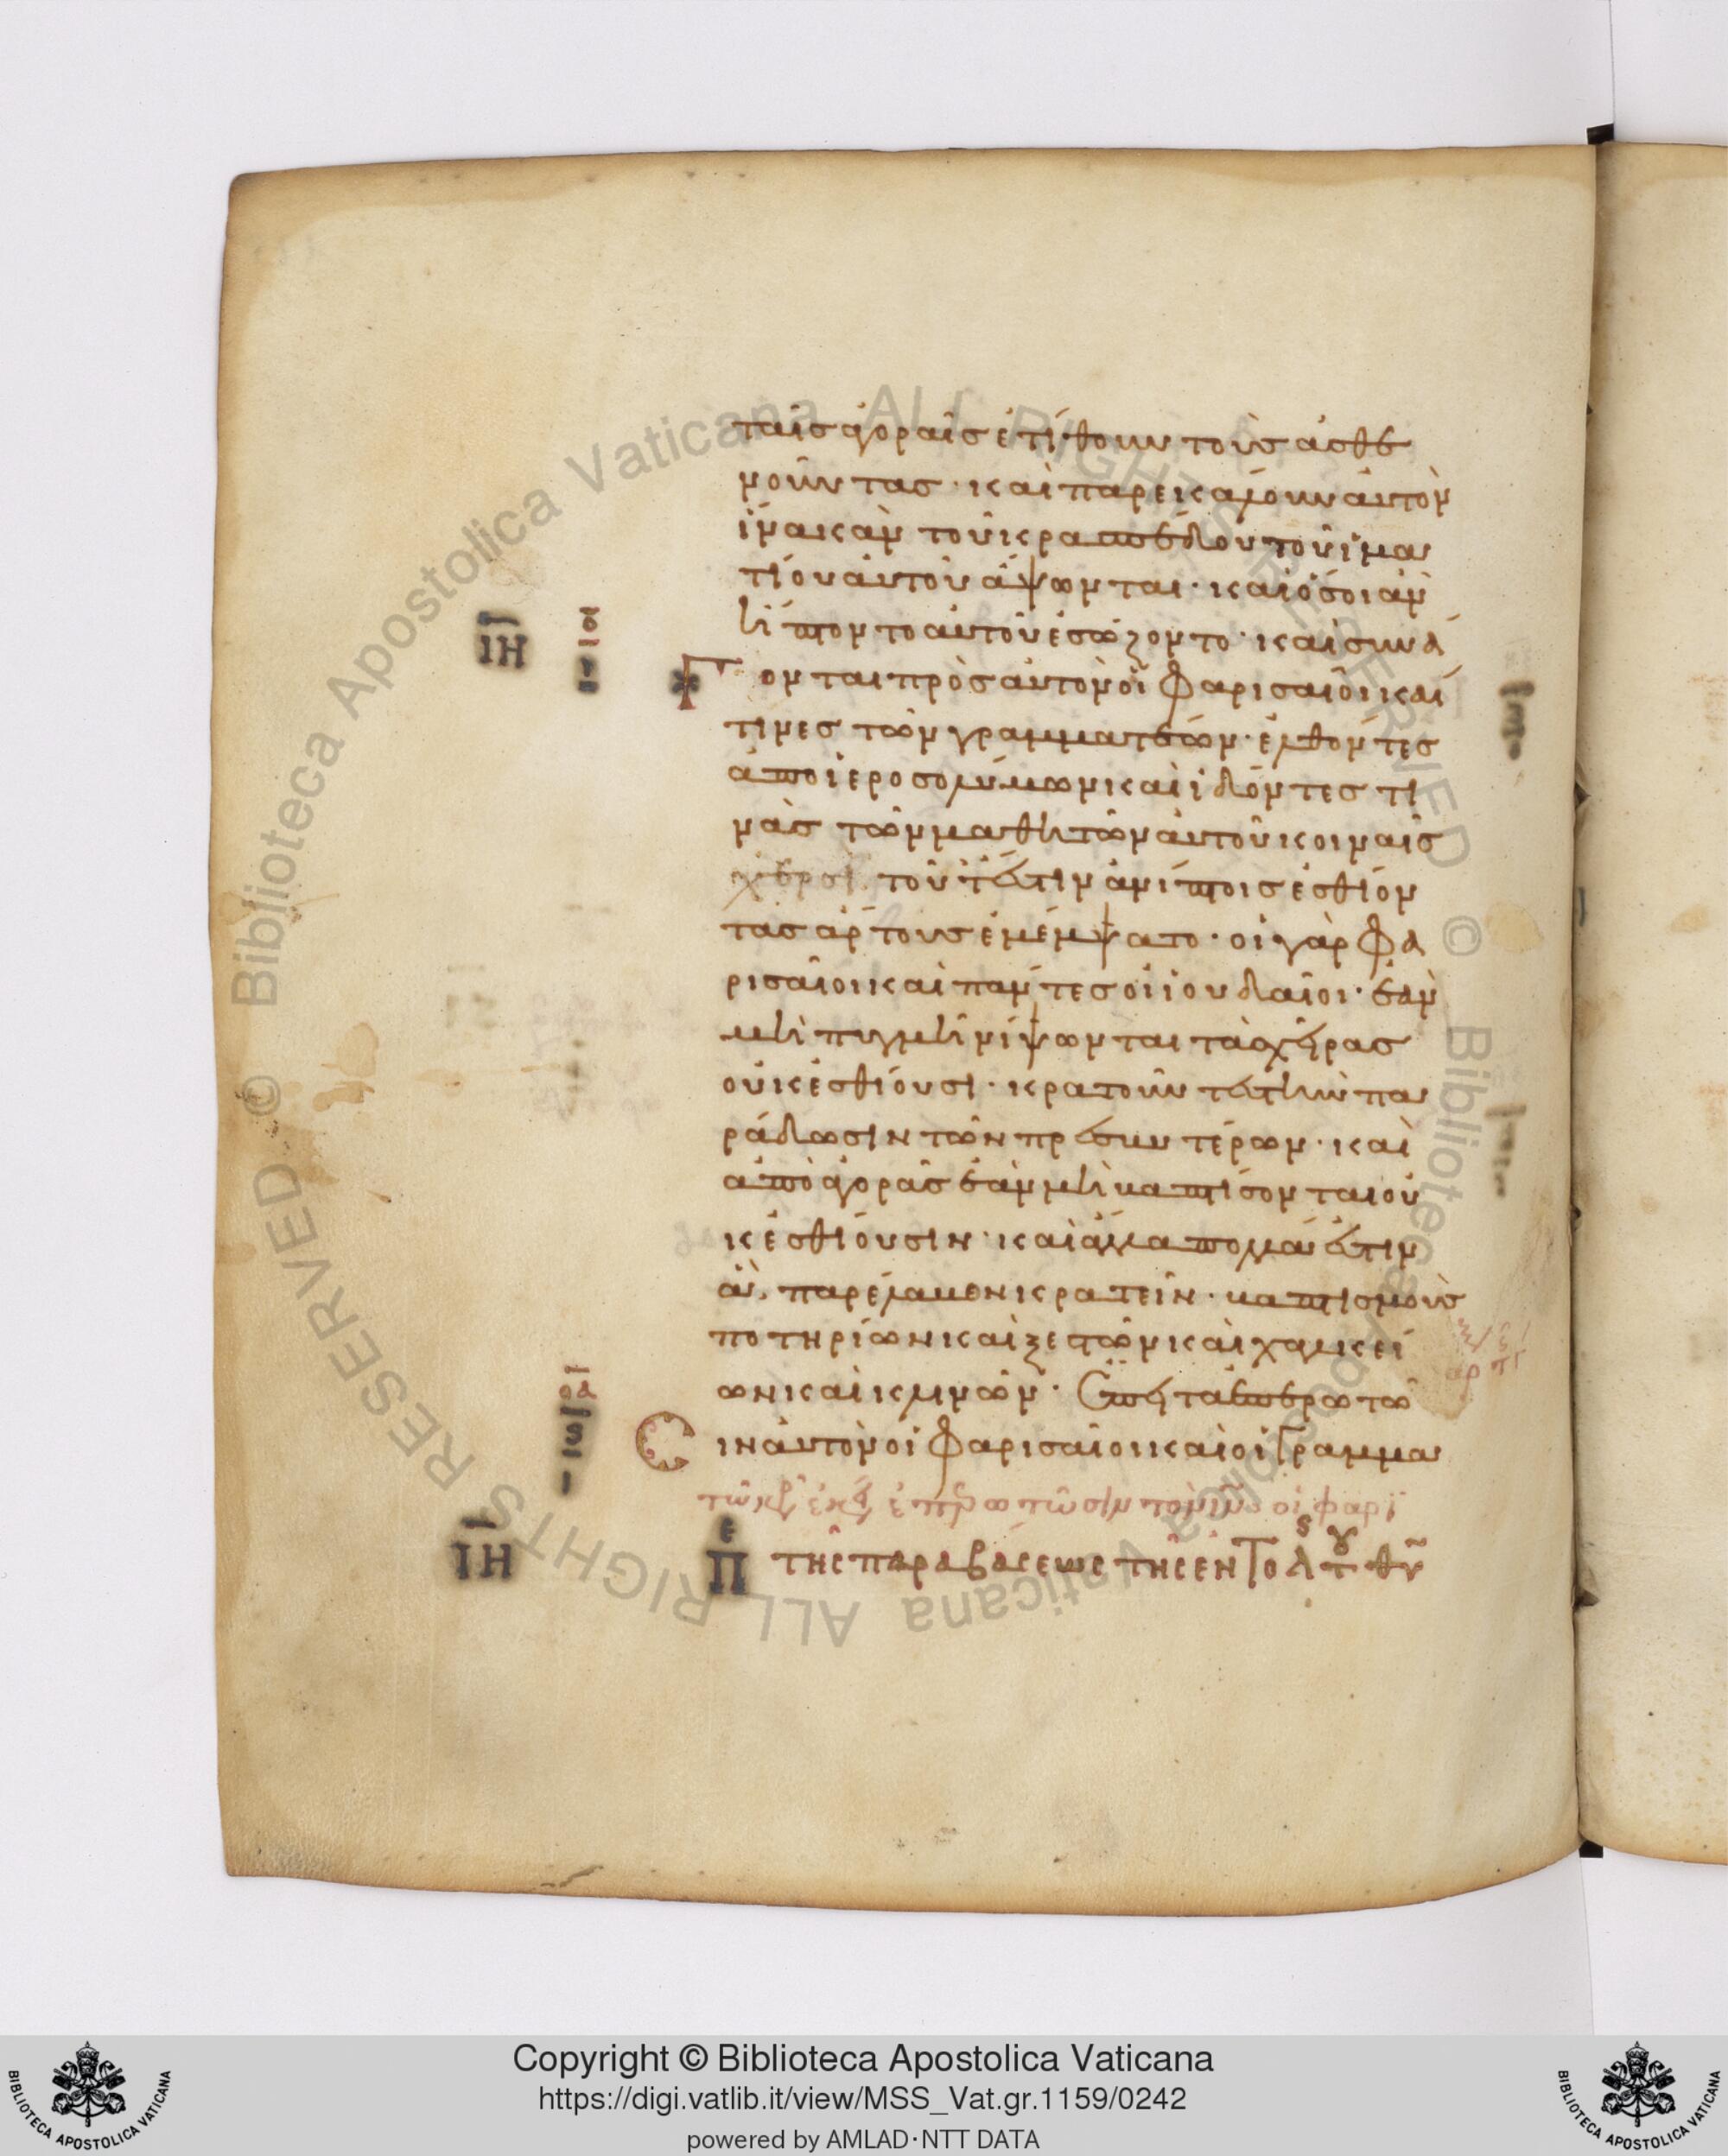 ταῖς ἀγοραῖς ἐτίθουν τοὺς ἀσθε
νοῦντας · καὶ παρεκάλουν αὐτὸν
ἵνα κἂν τοῦ κρασπέδου τοῦ ἱμα
τίου αὐτοῦ ἅψωνται · καὶ ὅσοι ἂν
ἥπτοντο αὐτοῦ ἐσώζοντο · καὶ συνά
γονται πρὸς αὐτὸν οἱ Φαρισαῖοι καί
τινες τῶν γραμματέων · ἐλθόντες
ἀπο ἱεροσολύμων καὶ ἰδόντες τι
νὰς τῶν μαθητῶν αὐτοῦ κοιναῖς
χερσὶ τοῦτέστιν ἀνίπτοις ἐσθίον
τας ἄρτους ἐμέμψατο · οἱ γὰρ Φα
ρισαῖοι καὶ πάντες οἱ ἰουδαῖοι · ἐὰν
μὴ πυγμῇ νίψωνται τὰς χεῖρας
οὐκ ἐσθίουσι · κρατοῦντες τὴν πα
ράδωσιν τῶν πρεσβυτέρων · καὶ
ἀπὸ ἀγορᾶς ἐὰν μὴ βαπτίσονται οὐ
κ ἐσθίουσιν · καὶ ἄλλα πολλά ἐστιν
ἃ παρέλαβον κρατεῖν · βαπτισμοὺς
ποτηρίων καὶ ξεστῶν καὶ χαλκεί
ων καὶ κλινῶν · Ἔπειτα ἐπερωτῶ
ϛ
σιν αὐτὸν οἱ Φαρισαῖοι καὶ οἱ Γραμμα
ΙΗ
Π<sup>ε</sup> τῆς παραβάσεως τῆς ἐντολ τοῦ θυ
Copyright © Biblioteca Apostolica Vaticana
https://digi.vatlib.it/view/MSS_Vat.gr.1159/0242
powered by AMLAD·NTT DATA
BIBLIOTECA APOSTOLICA VATICANA
BIBLIOTECA APOSTOLICA VATICANA